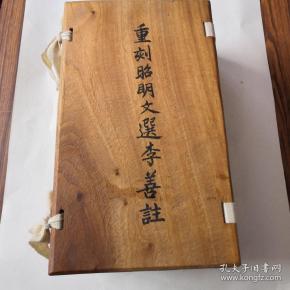 重刻昭明文選李善註
孔夫子旧书网